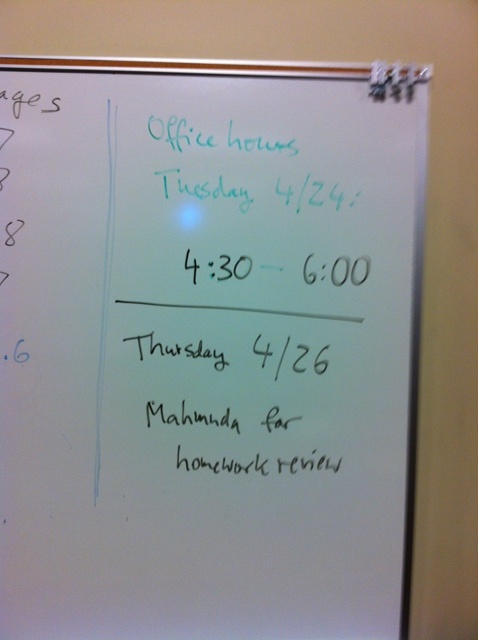 ages
7
3
8
7
.6
Office hours
Tuesday 4/24:
4:30 - 6:00
Thursday 4/26
Mahmuda for
homework review